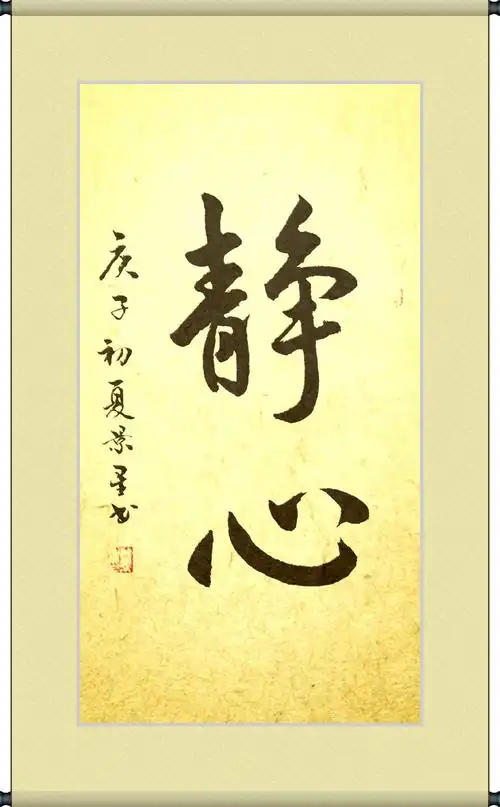 静心
庚子初夏景星书